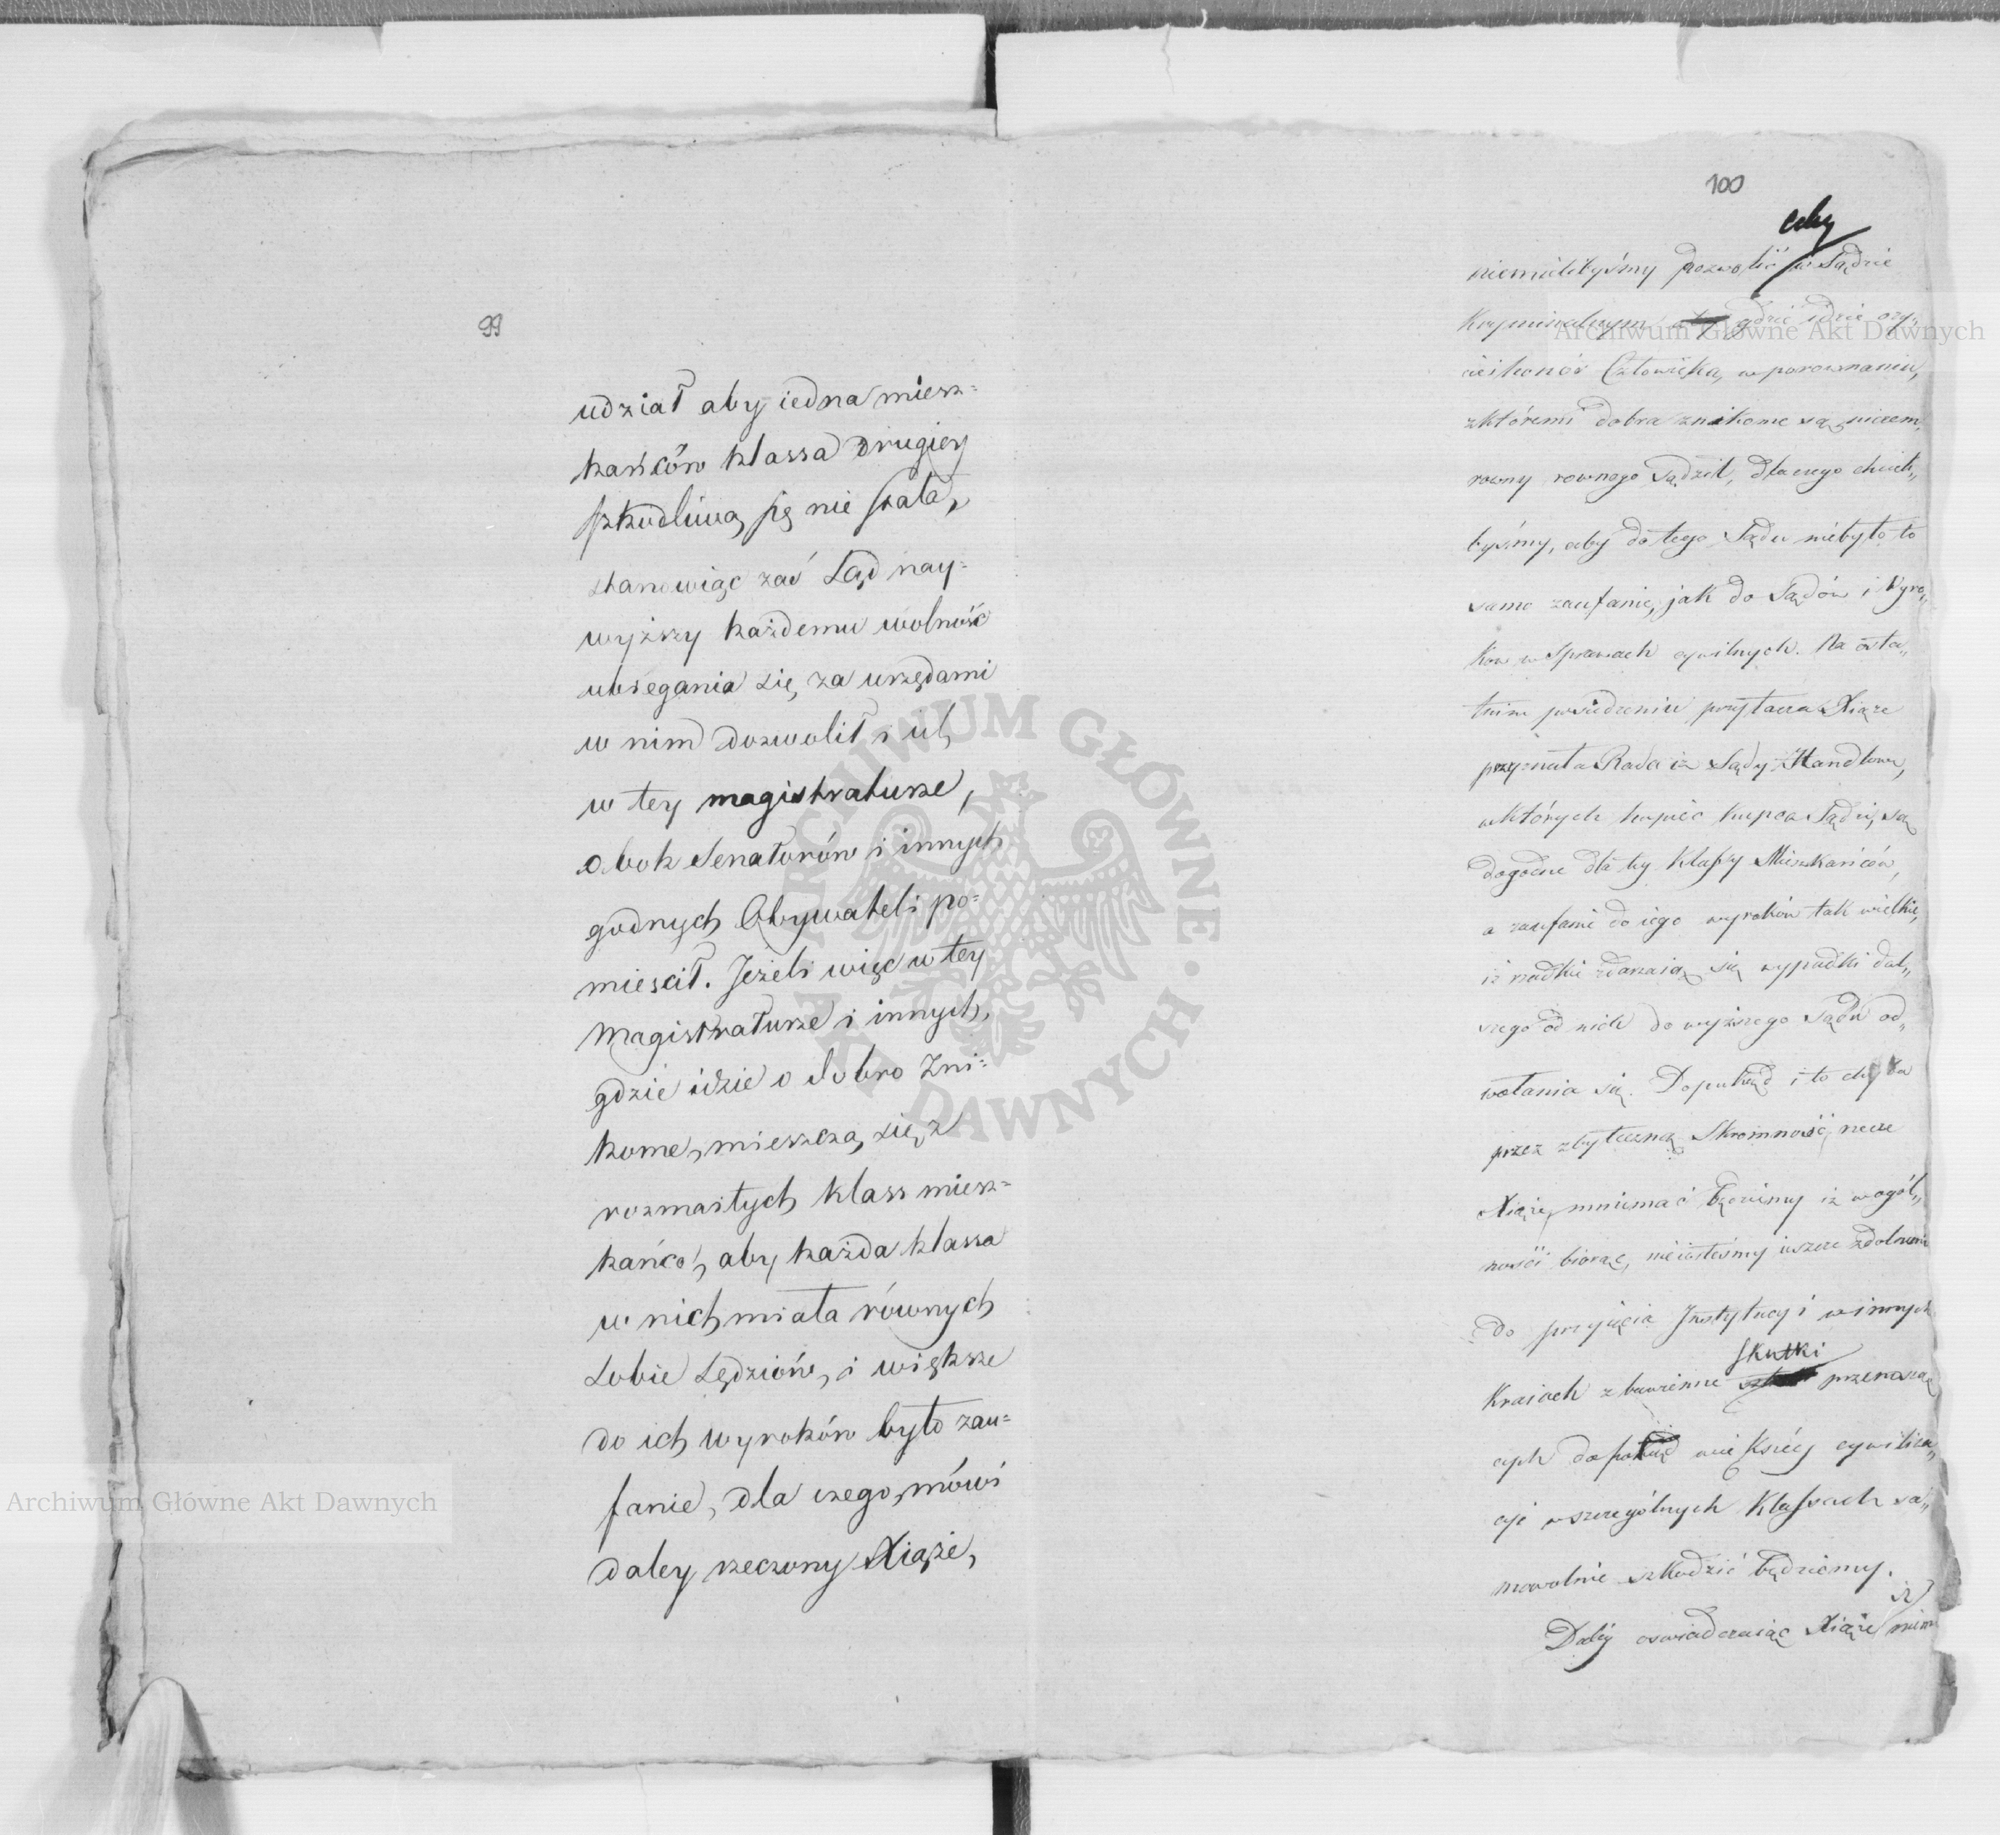 99
udział aby iedna miesz=
kańców klassa drugiey
szkodliwą się nie stała,
stanowiąc zaś Sąd nay=
wyższy każdemu wolność
ubiegania się, za urzędami
w nim dozwolił i ich
w tey magistraturze,
obok Senatorów i innych
godnych Obywateli po=
mieścił. Jeżeli więc w tey
Magistraturze i innych,
gdzie idzie o dobro zni=
kome, mieszczą się z
rozmaitych klass miesz=
kańcó, aby każda klassa
w nich miała równych
Sobie Sędziów, i większe
do ich wyroków było zau=
fanie, dla czego, mówi
daley rzeczony Xiąże,
100
aby
niemielibyśmy pozwolić w Sądzie
Kryminalnym gdzie idzie o ży„
cie i honór Człowieka, w porownaniu,
z któremi dobra znikome są niczem,
rowny rownego sądził, dlaczego chcieli„
byśmy, aby do tego Sądu niebyło to
samo zaufanie, jak do Sądów i Wyro„
ków w Sprawach cywilnych. Na osta„
tnim posiedzeniu przytacza Xiąże
przyznała Rada iż Sądy Handlowe,
w których kupiec kupca Sądzi, są
dogodne dla tey Klassy Mieszkańców,
a zaufanie do iego wyroków tak wielkie,
iż rzadkie zdarzaią się wypadki dal„
szego od nich do wyższego Sądu od„
wołania się. Dopokąd i to chyba
przez zbyteczną Skromność, rzecze
Xiąże, mniemać będziemy iż w ogól„
ności biorąc, nieiesteśmy ieszcze zdolnemi
do przyięcia Instytucyi w innych
Skutki
Kraiach zbawienne przynoszą
cych dopokąd większéy cywiliza„
cyi w szczególnych Klassach sa„
mowolnie szkodzić będziemy.
iż
Daléy oswiadczaiąc Xiąże mimo
Archiwum Główne Akt Dawnych
Archiwum Główne Akt Dawnych
ARCHIWUM GŁÓWNE AKT DAWNYCH